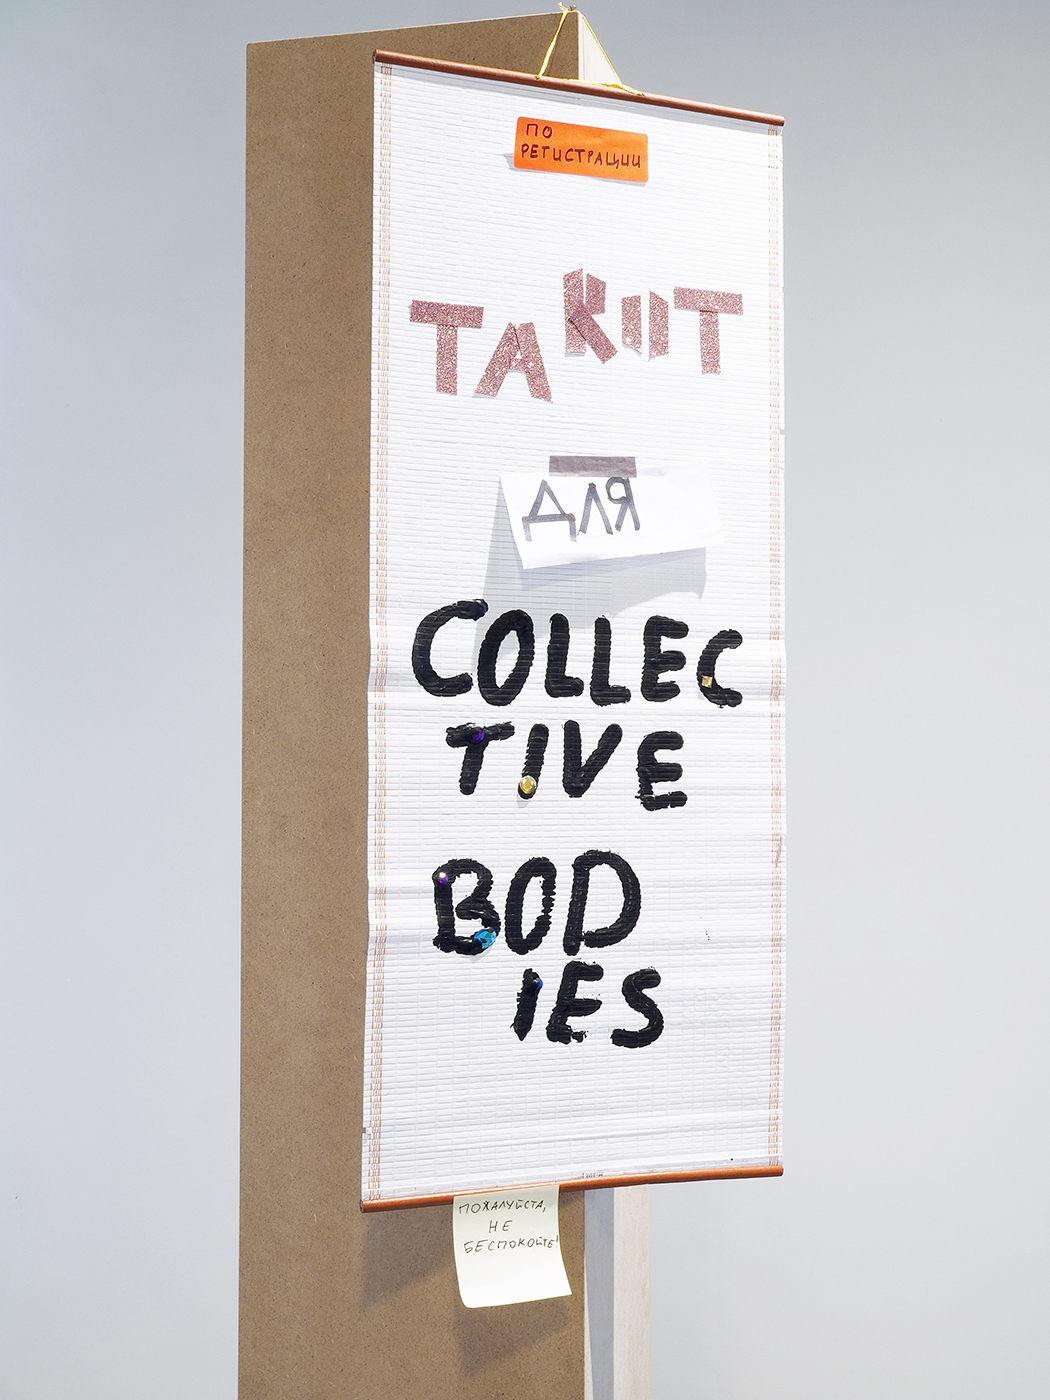 ПО
РЕГИСТРАЦИИ
ДЛЯ
COLLEC
TIVE
BOD
IES
ПОЖАЛУЙСТА,
НЕ
БЕСПОКОЙТЕ!